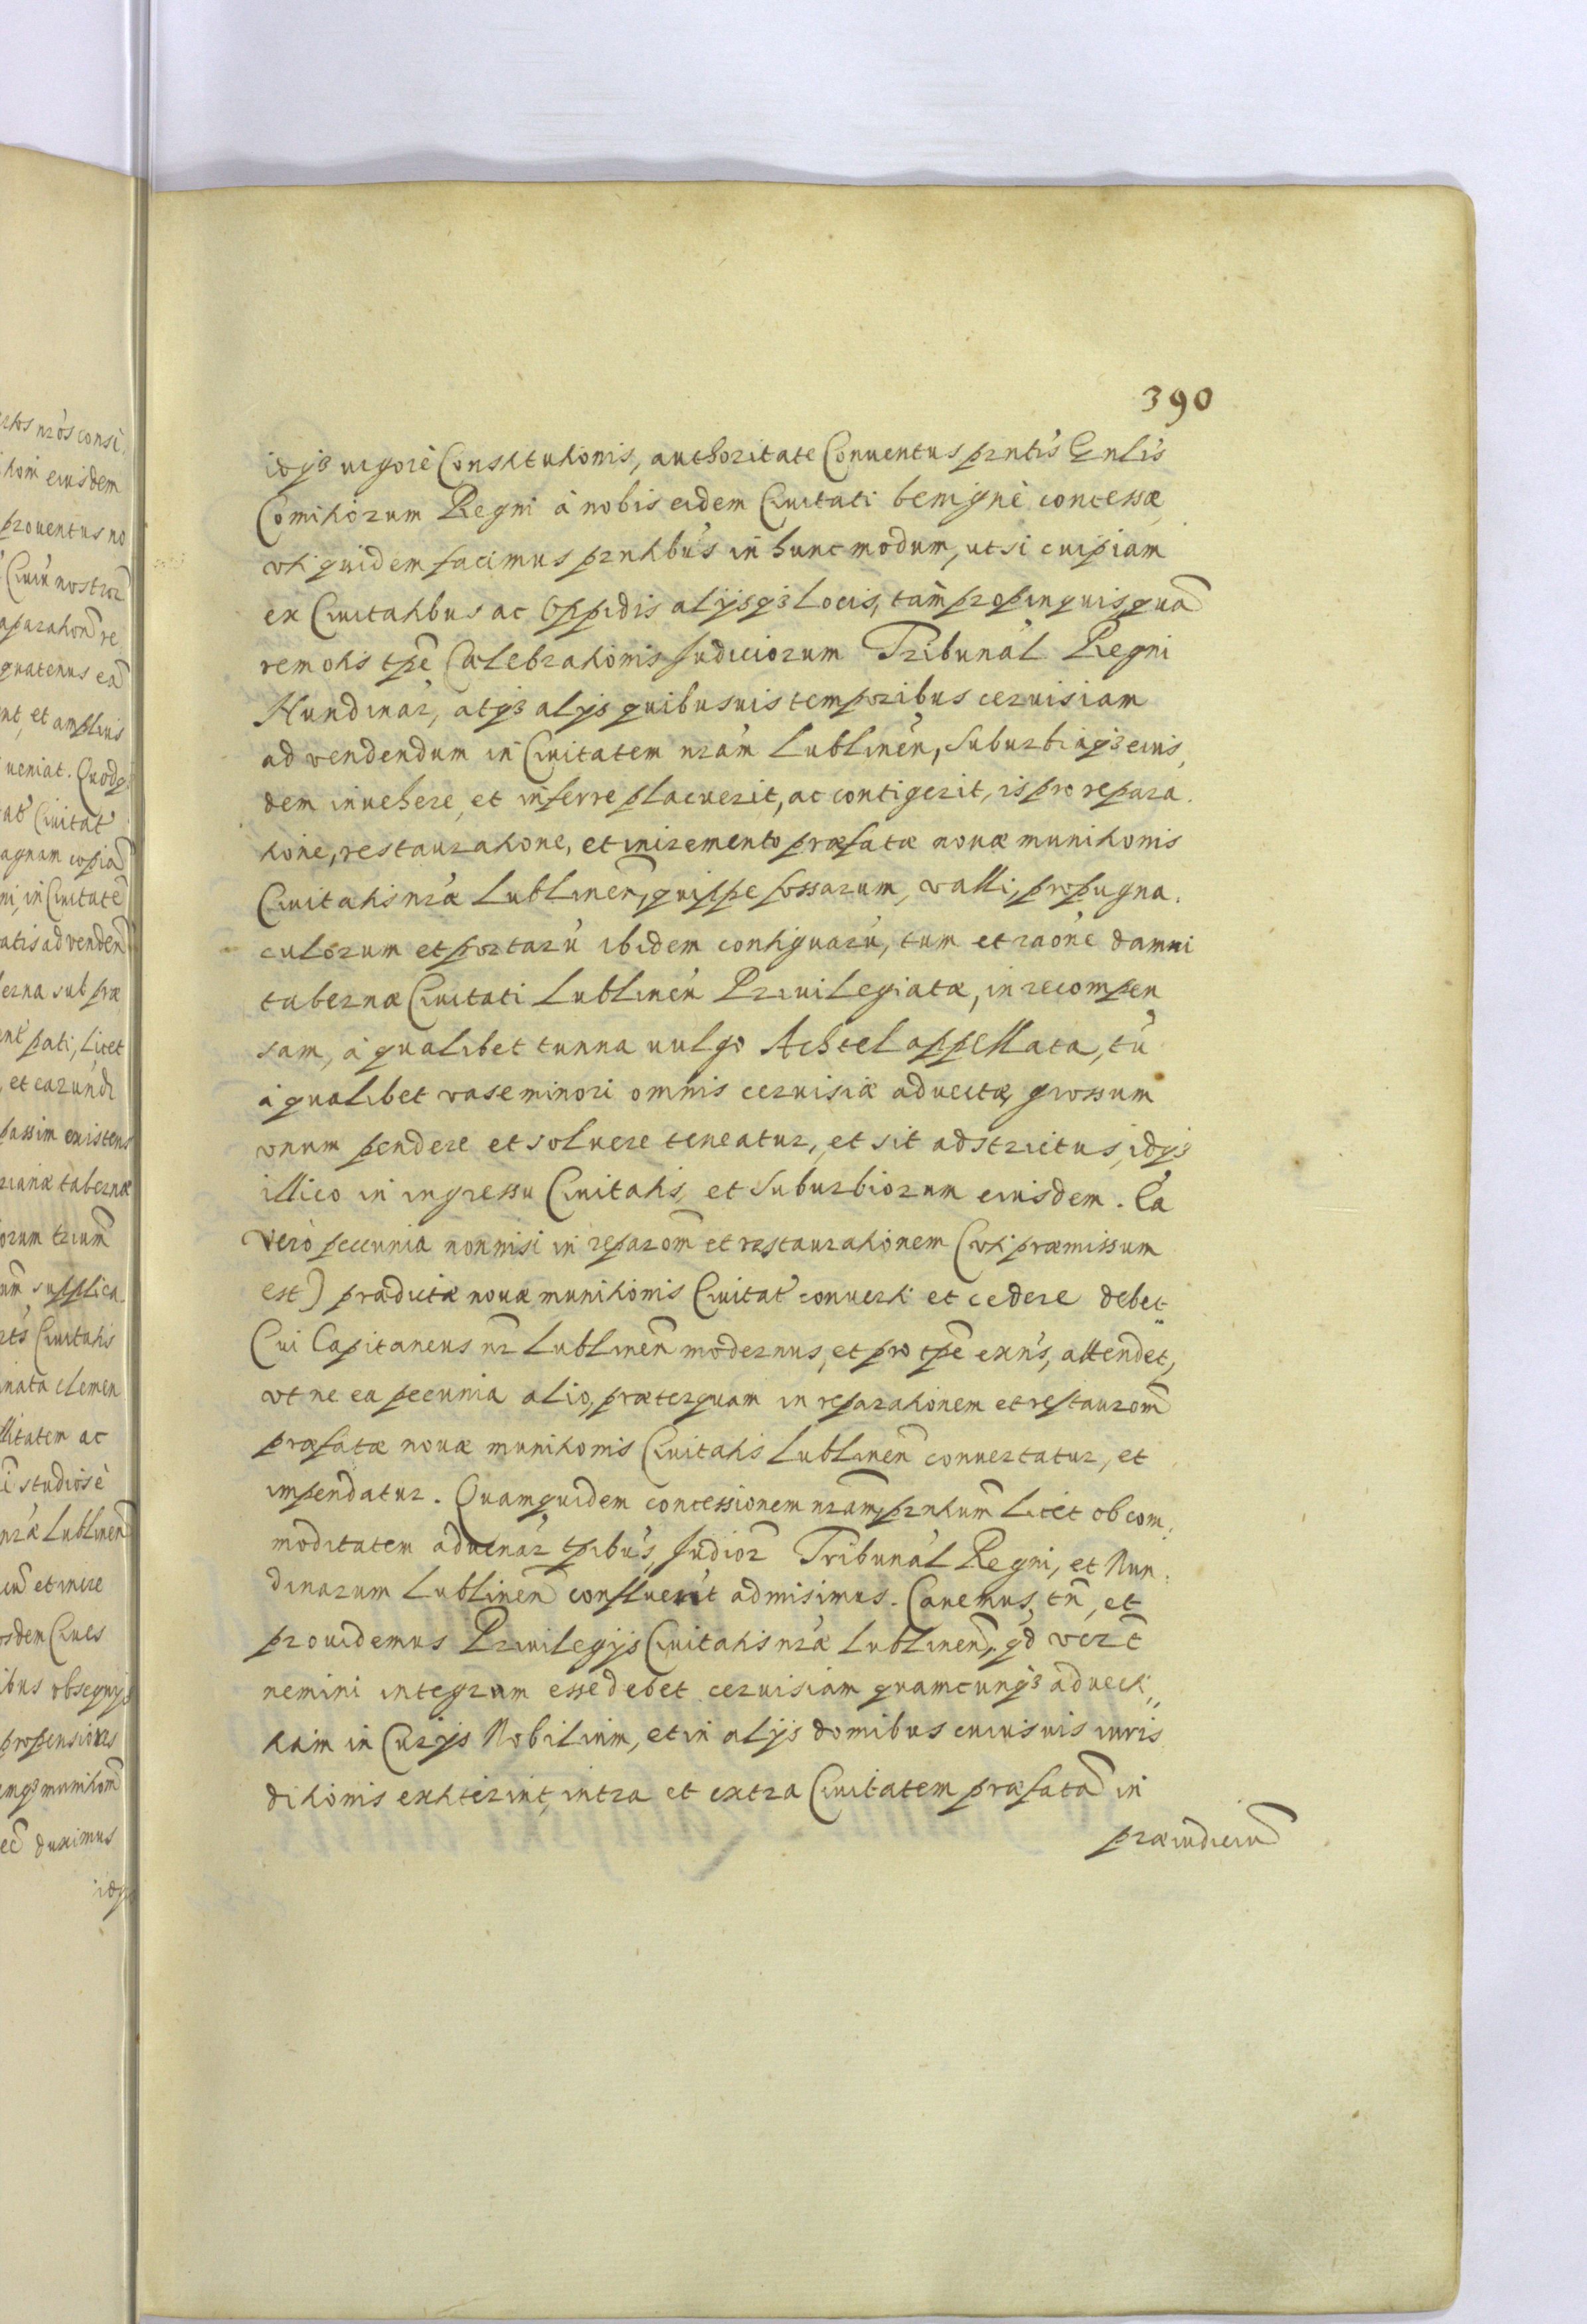 390
idq3 uigore Constitutionis, authoritate Conuentus prntis Gnlis
Comitiorum Regni à nobis eidem Ciuitati benignè concessæ,
vti quidem facimus prntibus in hunc modum, ut si cuipiam
ex Ciuitatibus ac Oppidis alijsq3 Locis, tam propinquis, quā
remotis tpē Cælebrationis Judiciorum Tribunal Regni
Nundinar, atq3 alijs quibusuis temporibus ceruisiam
ad vendendum in Ciuitatem nram Lublinen, Suburbiaq3 eius,
dem inuehere, et inferre placuerit, ac contigerit, is pro repara.
tione, restauratione, et incremento præfatæ nouæ munitionis
Ciuitatis nræ Lublinen, quippe fossarum, valli, propugna.
culorum et portarū ibidem contiguarū, tum et raōne damni
tabernæ Ciuitati Lublinen Priuilegiatæ, in recompen
sam, à qualibet tunna uulgo Achtel appellata, tū
à qualibet vase minori omnis ceruisiæ aduectæ, grossum
vnum pendere et soluere teneatur, et sit adstrictus, idq3
illico in ingressu Ciuitatis, et Suburbiorum eiusdem. Ea
vero pecunia non nisi in reparom et restaurationem (vti præmissum
est) prædictæ nouæ munitionis Ciuitat conuerti et cedere debet
Cui Capitaneus nr Lublinen modernus, et pro tpē exns, attendet,
vt ne ea pecunia alio, præterquam in reparationem et restaurom
præfatæ nouæ munitionis Ciuitatis Lublinen conuertatur, et
impendatur. Quamquidem concessionem nram, prntium licet ob com:
moditatem aduenar tpibus, Judior Tribunal Regni, et Nun:
dinarum Lublinen confluent admisimus. Cauemus tn, et
prouidemus Priuilegijs Ciuitatis nræ Lublinen, qd
nemini integrum esse debet ceruisiam quamcunq3 aduecti,,
tiam in Curijs Nobilium, et in alijs domibus cuiusuis iuris
ditionis extiterint, intra et extra Ciuitatem præfatā in
præiudiciū
rtos nros consi
tiom eiusdem
prouentus no
Ciuiū nostror
aparation re
quatenus eā
nt, et amplius
ueniat. Quodq
at Ciuitat
agnam copiā
ni, in Ciuitate
atis ad venden
erna sub præ
ent pati, licet
, et earundi
passim existens
rianæ tabernæ
orum trium
um supplica.
rts Ciuitatis
inata clemen
llitatem ac
studiosè
nræ Lublinen
et incre
osdem Ciues
ibus obsequijs
propensiores
mq3 munitiom
duximus
idq